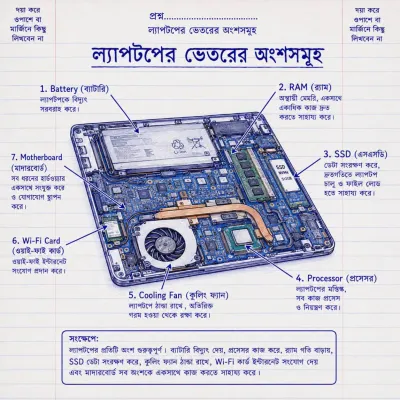 দয়া করে
ওপাশে বা
মার্জিনে কিছু
লিখবেন না
প্রশ্ন..............................
ল্যাপটপের ভেতরের অংশসমূহ
দয়া করে
ওপাশে বা
মার্জিনে কিছু
লিখবেন না
ল্যাপটপের ভেতরের অংশসমূহ
1. Battery (ব্যাটারি)
ল্যাপটপকে বিদ্যুৎ
সরবরাহ করে।
2. RAM (র‍্যাম)
অস্থায়ী মেমরি, একসাথে
একাধিক কাজ দ্রুত
করতে সাহায্য করে।
3. SSD (এসএসডি)
ডেটা সংরক্ষণ করে,
দ্রুতগতিতে ল্যাপটপ
চালু ও ফাইল লোড
হতে সাহায্য করে।
SSD
7. Motherboard
(মাদারবোর্ড)
সব ধরনের হার্ডওয়্যার
একসাথে সংযুক্ত করে
ও যোগাযোগ স্থাপন
করে।
6. Wi-Fi Card
(ওয়াই-ফাই কার্ড)
ওয়াই-ফাই ইন্টারনেট
সংযোগ প্রদান করে।
5. Cooling Fan (কুলিং ফ্যান)
ল্যাপটপে ঠান্ডা রাখে, অতিরিক্ত
গরম হওয়া থেকে রক্ষা করে।
4. Processor (প্রসেসর)
ল্যাপটপের মস্তিষ্ক,
সব কাজ প্রসেস
ও নিয়ন্ত্রণ করে।
সংক্ষেপে:
ল্যাপটপের প্রতিটি অংশ গুরুত্বপূর্ণ। ব্যাটারি বিদ্যুৎ দেয়, প্রসেসর কাজ করে, র‍্যাম গতি বাড়ায়,
SSD ডেটা সংরক্ষণ করে, কুলিং ফ্যান ঠান্ডা রাখে, Wi-Fi কার্ড ইন্টারনেট সংযোগ দেয়
এবং মাদারবোর্ড সব অংশকে একসাথে কাজ করতে সাহায্য করে।